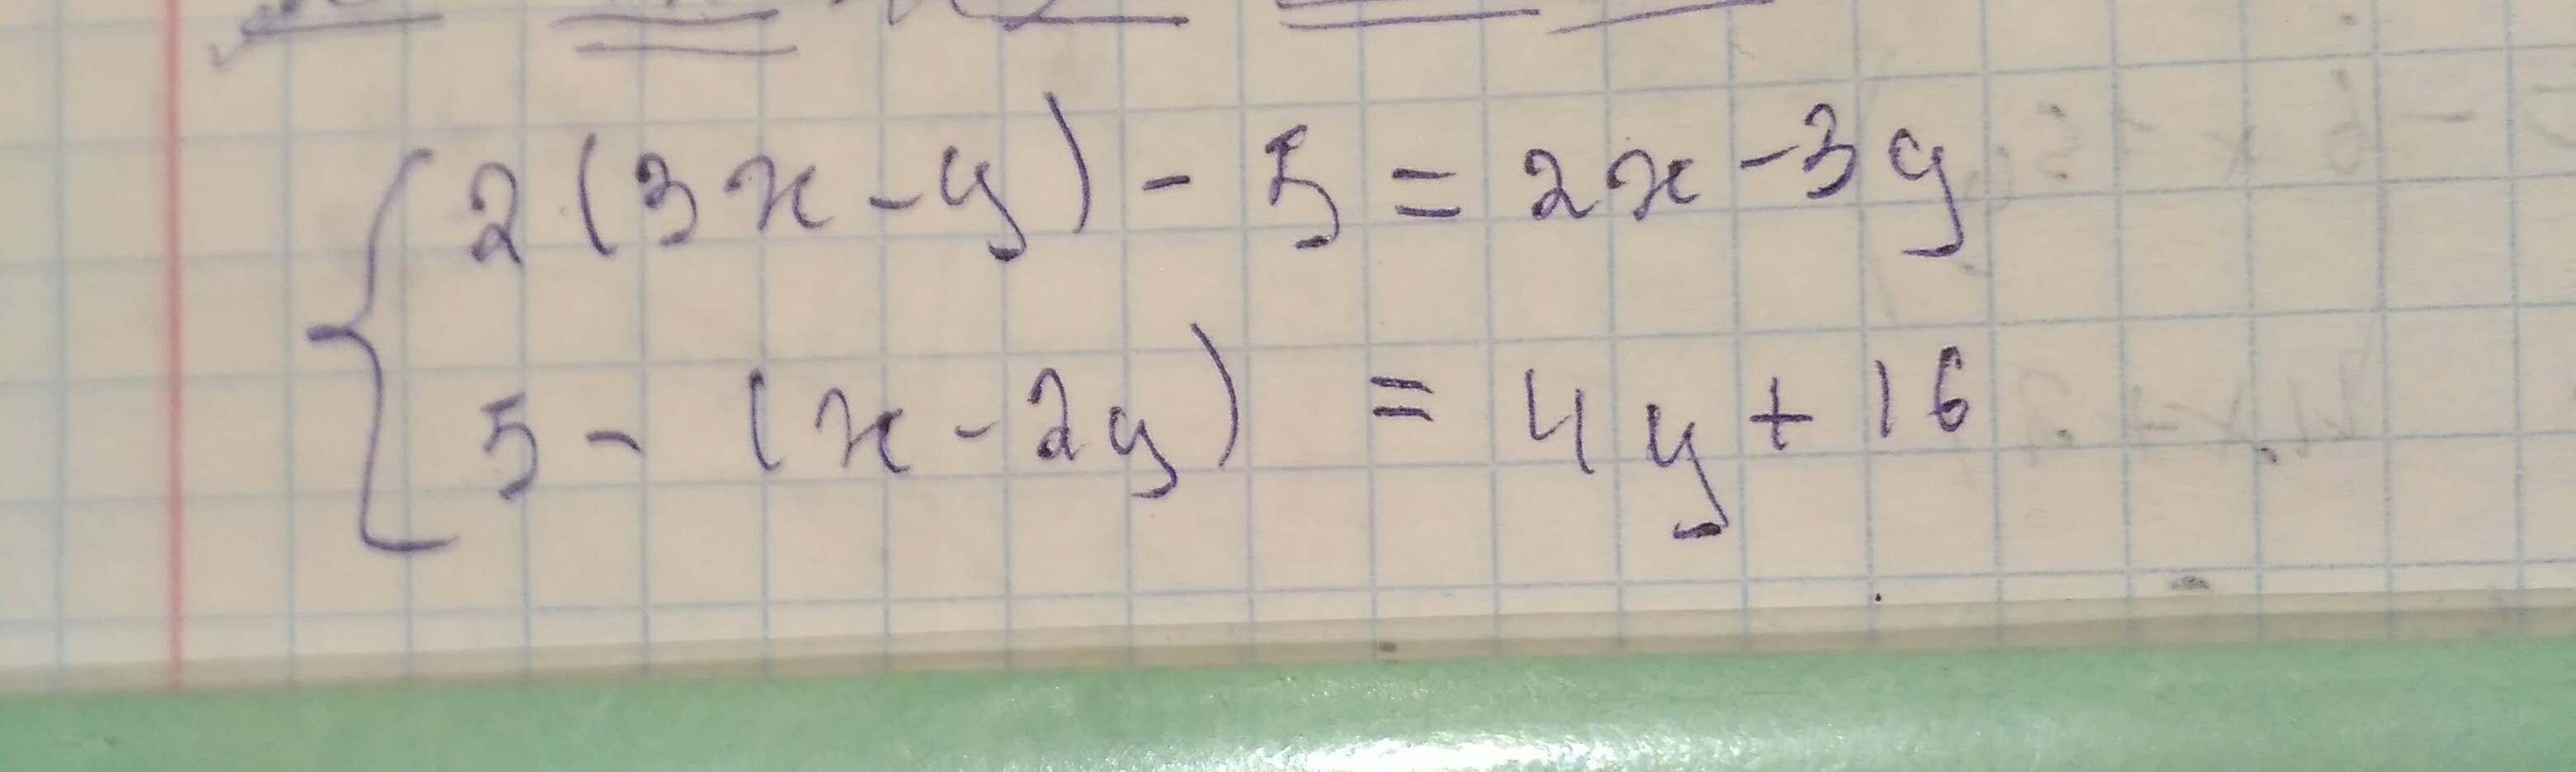 2(3x-y)-5=2x-3y
5-(x-2y)=4y+16